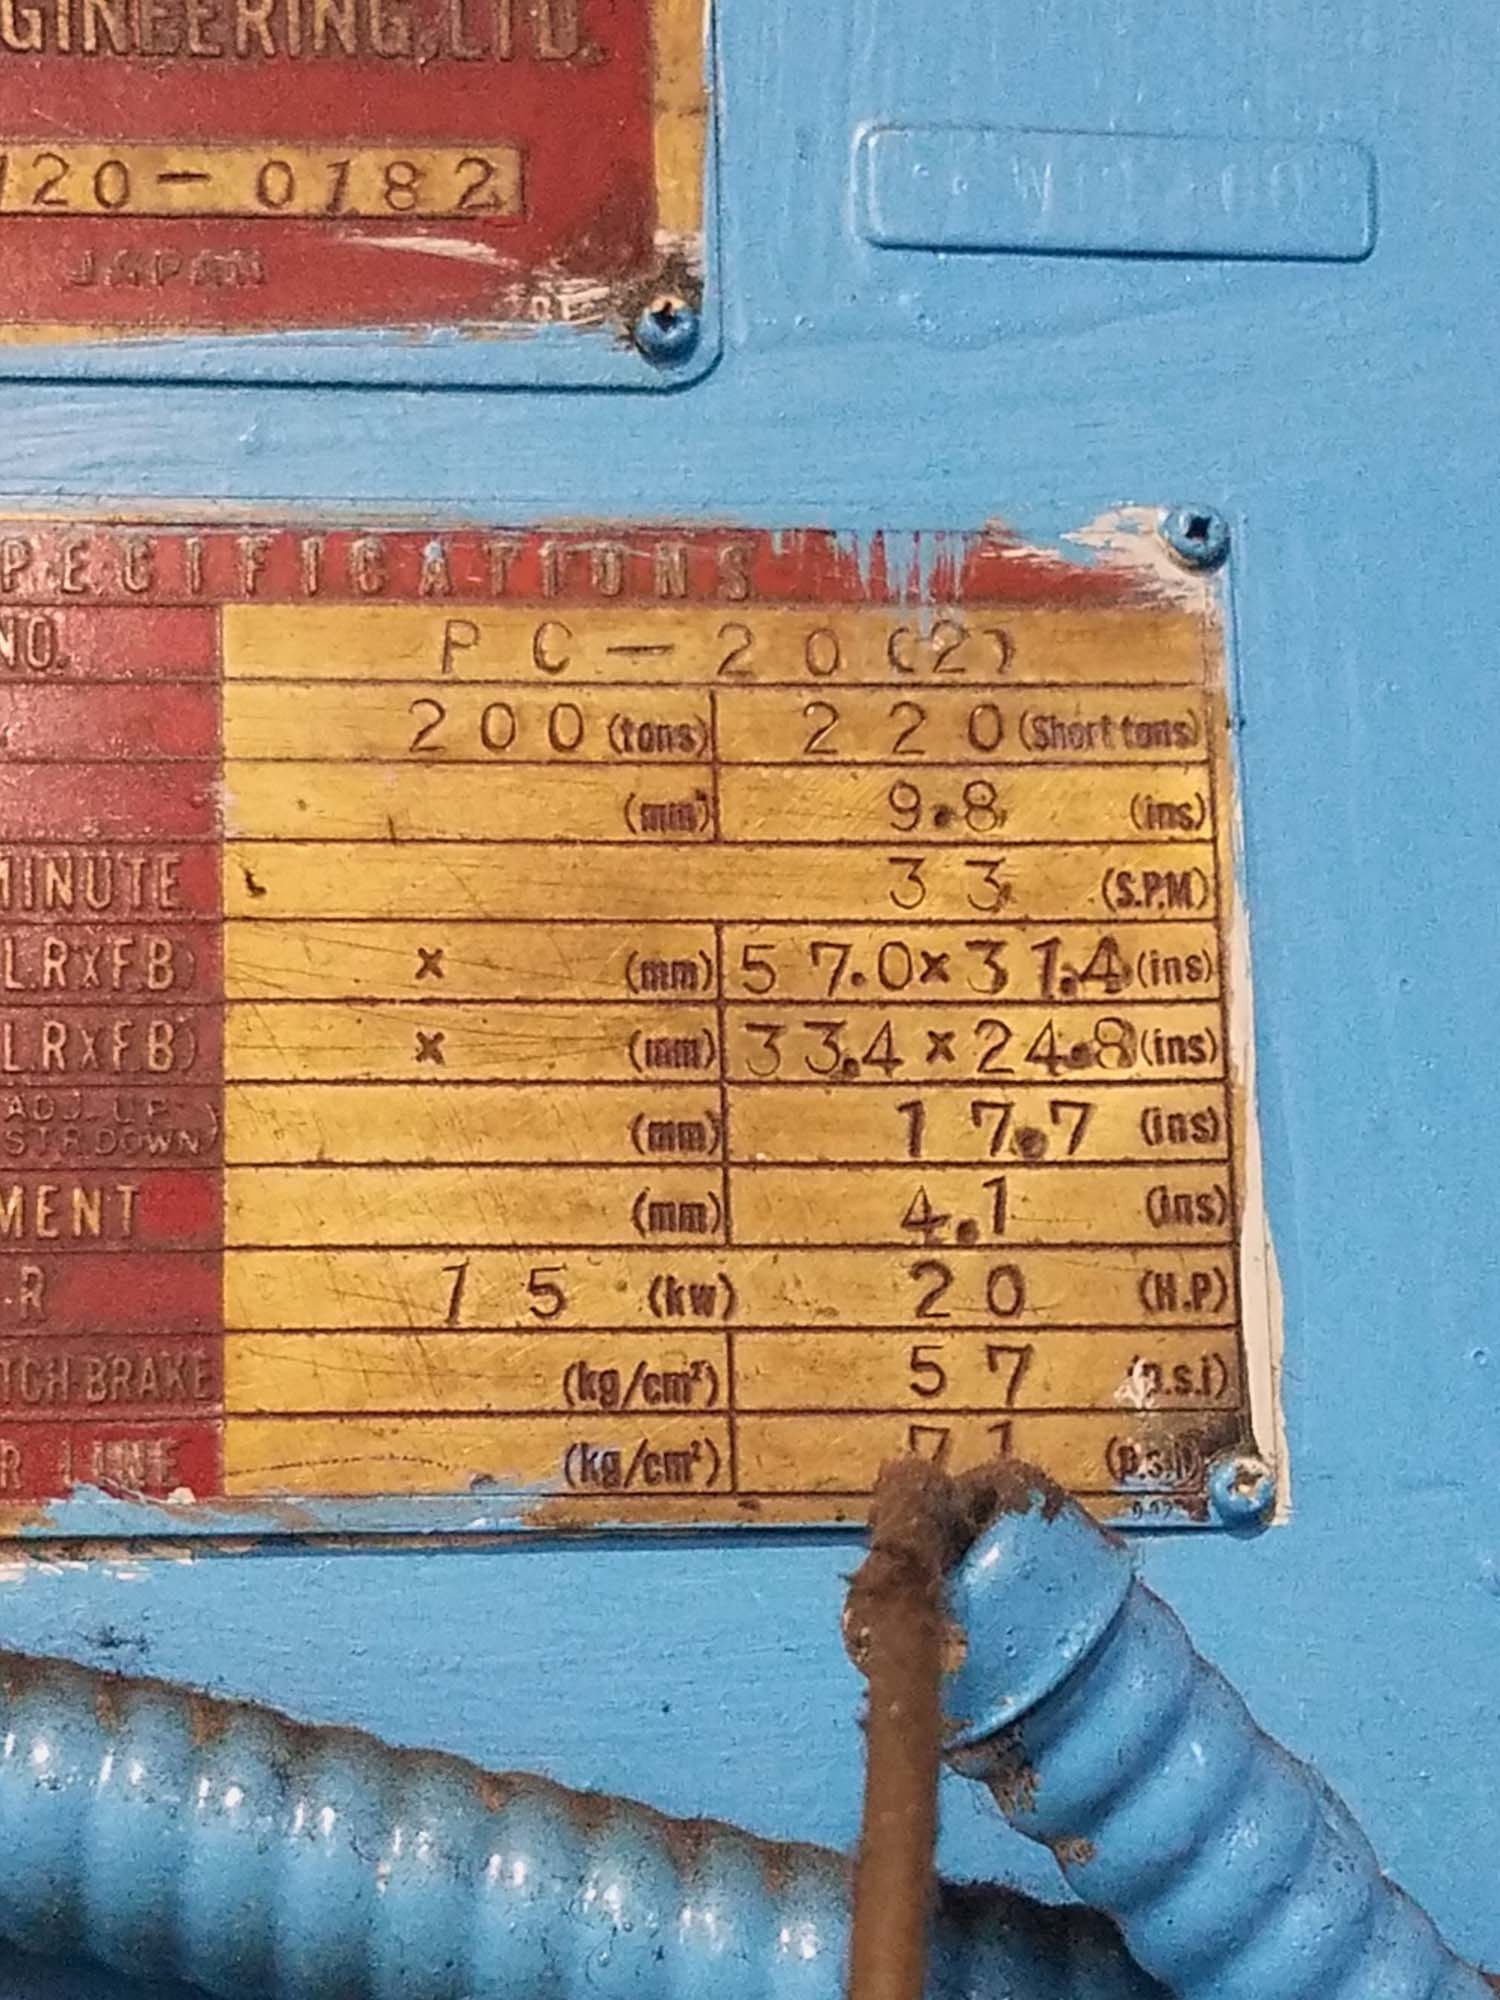 GINEERING, LTD.
120-0182
JAPAN
PECIFICATIONS
NO. PC-20(2)
200 (tons) 220 (Short tons)
(mm) 9.8 (ins)
MINUTE 33 (S.P.M)
L.R×F.B) × (mm) 57.0×31.4 (ins)
L.R×F.B) × (mm) 33.4×24.8 (ins)
ADJ. UP
STR.DOWN) (mm) 17.7 (ins)
MENT (mm) 4.1 (ins)
R 15 (kw) 20 (H.P)
TCH-BRAKE (kg/cm²) 57 (p.s.i)
R LINE (kg/cm²) 71 (p.s.i)